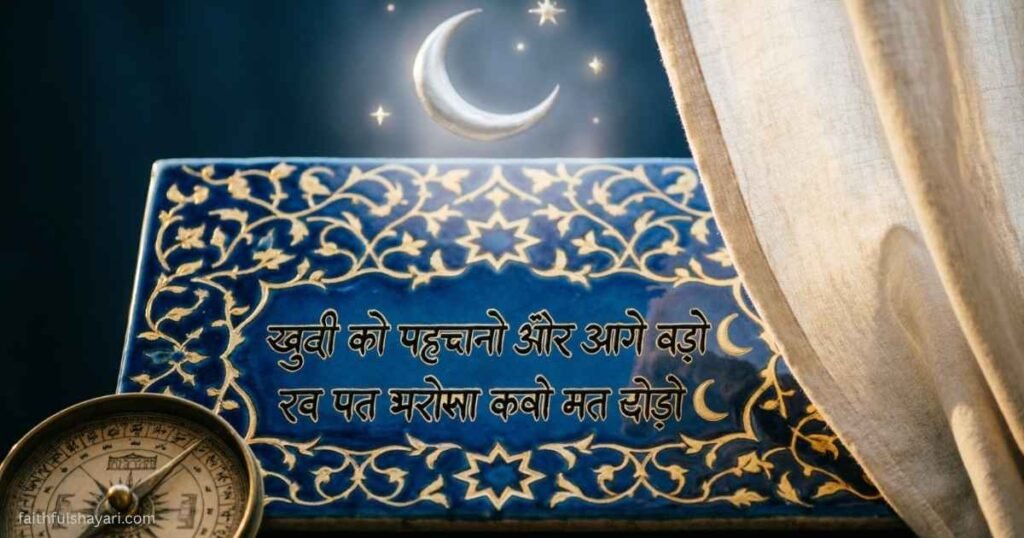 खुदी को पहचानो और आगे वड़ो
रव पत भरोसा कवो मत छोड़ो
faithfulshayari.com